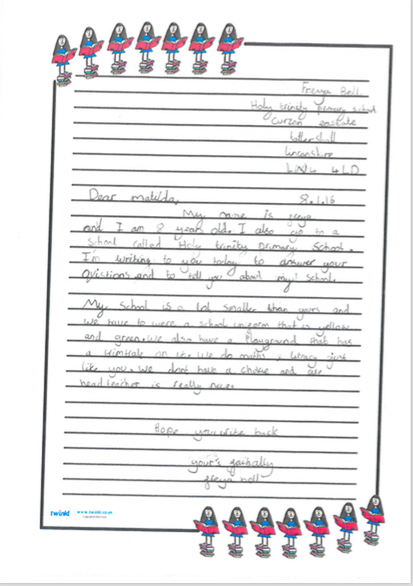 Freya Bell
Holy trinity primary school
Curzon estate
tattershall
lincolnshire
LN4 4LD
Dear matilda,
8.1.16
My name is freya
and I am 8 years old. I also go to a
school called Holy trinity primary School.
I'm writing to you today to answer your
Quistions and to tell you about my school.
My School is a lot smaller than yours and
we have to were a school uniform that is yellow
and green. We also have a Playground that has
a trimtrale on it. We do maths, literacy just
like you. We dont have a and are
headteacher is really nice.
Hope you write back
your's
freya bell
twinkl www.twinkl.co.uk